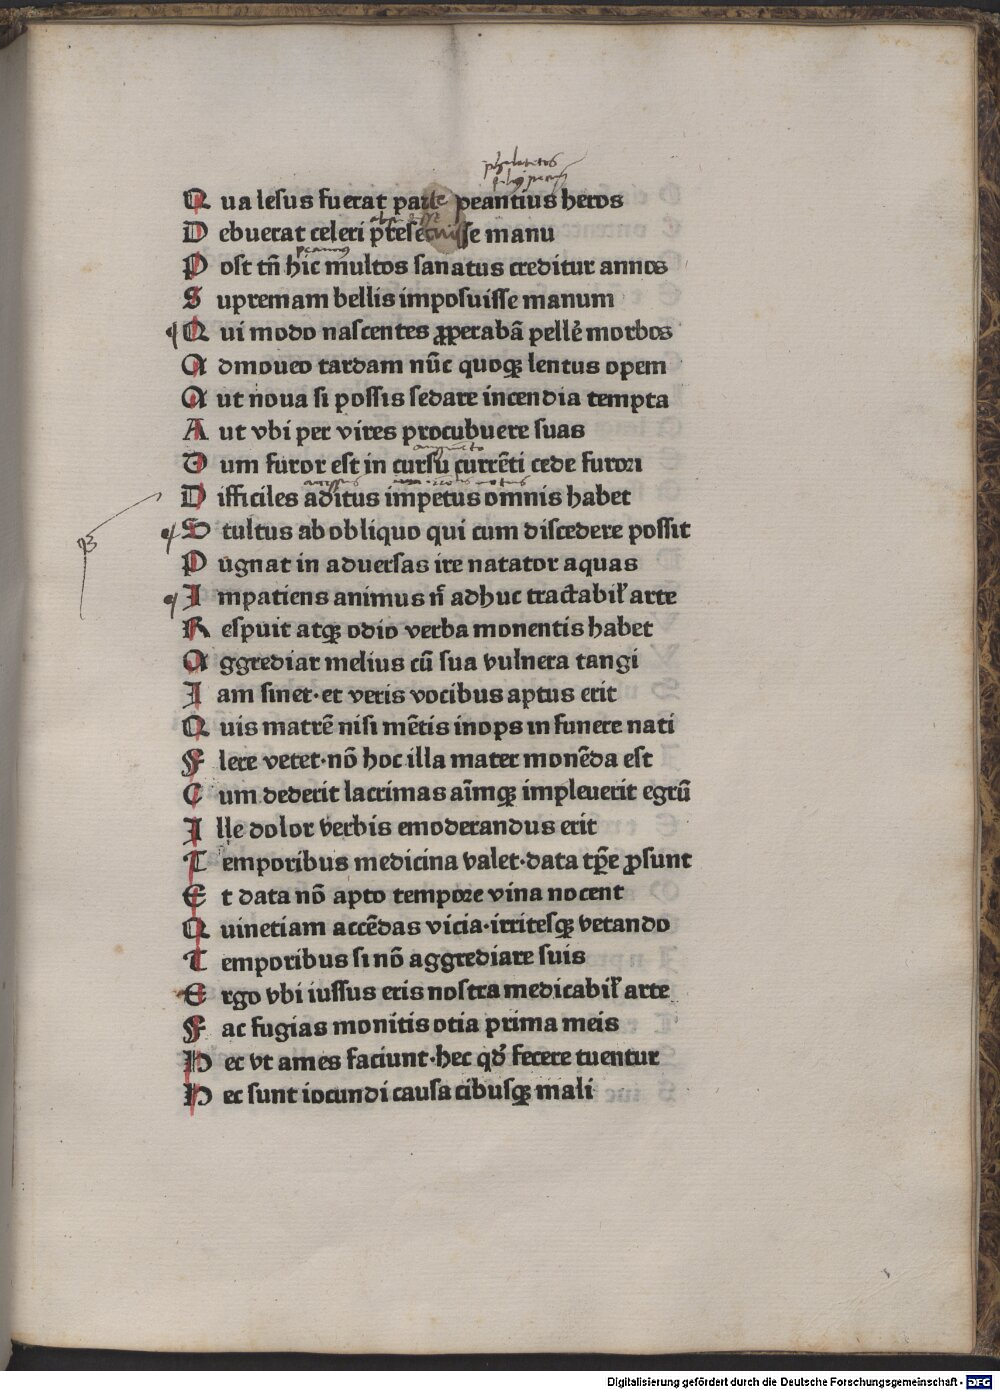 Qua lesus fuerat parte peantius heros
Debuerat celeri p̄tesecuisse manu
Post tn̄ hic multos sanatus creditur annos
Supremam bellis imposuisse manum
Qui modo nascentes ꝓperabā pellē morbos
Admoueo tardam nūc quoqꝫ lentus opem
Aut noua si possis sedare incendia tempta
Aut vbi per vires procubuere suas
Dum furor est in cursu currēti cede furori
Difficiles aditus impetus omnis habet
Stultus ab obliquo qui cum discedere possit
Pugnat in aduersas ire natator aquas
Impatiens animus n̄ adhuc tractabil' arte
Respuit atqꝫ odio verba monentis habet
Aggrediar melius cū sua vulnera tangi
Iam sinet·et veris vocibus aptus erit
Quis matrē nisi mētis inops in funere nati
Flere vetet·nō hoc illa mater monēda est
Cum dederit lacrimas aīmqꝫ impleuerit egrū
Ille dolor verbis emoderandus erit
Temporibus medicina valet·data tp̄e ꝓsunt
Et data nō apto tempore vina nocent
Quinetiam accēdas vicia·irritesqꝫ vetando
Temporibus si nō aggrediare suis
Ergo vbi iussus eris nostra medicabil' arte
Fac fugias monitis otia prima meis
Hec vt ames faciunt·hec qd' fecere tuentur
Hec sunt iocundi causa cibusqꝫ mali
Digitalisierung gefördert durch die Deutsche Forschungsgemeinschaft - DFG